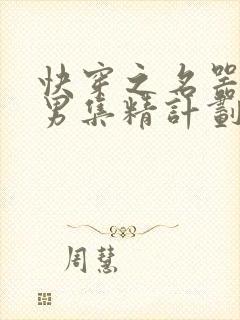 快穿之名器
男集精計劃
周慧